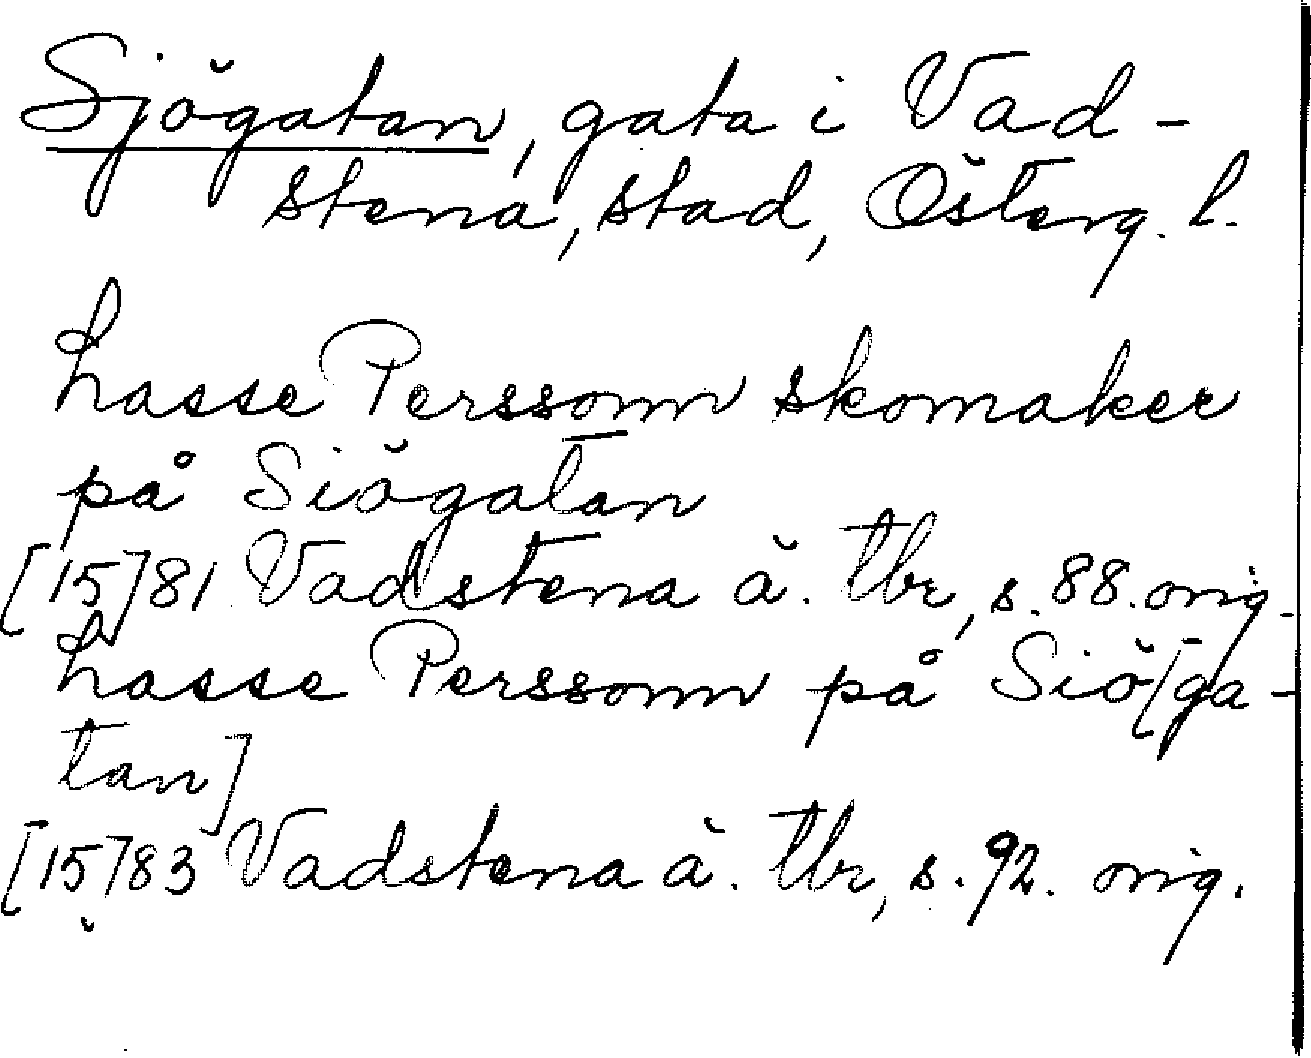 Sjögatan, gata i Vad-
stena, stad, Österg. l.
hasse Perssonn skomaker
på Siögatan
[15]81 Vadstena ä. tbr, s. 88. orig.
hasse Perssonn på Siö[ga-
tan]
[15]83 Vadstena ä. tbr, s. 92. orig.